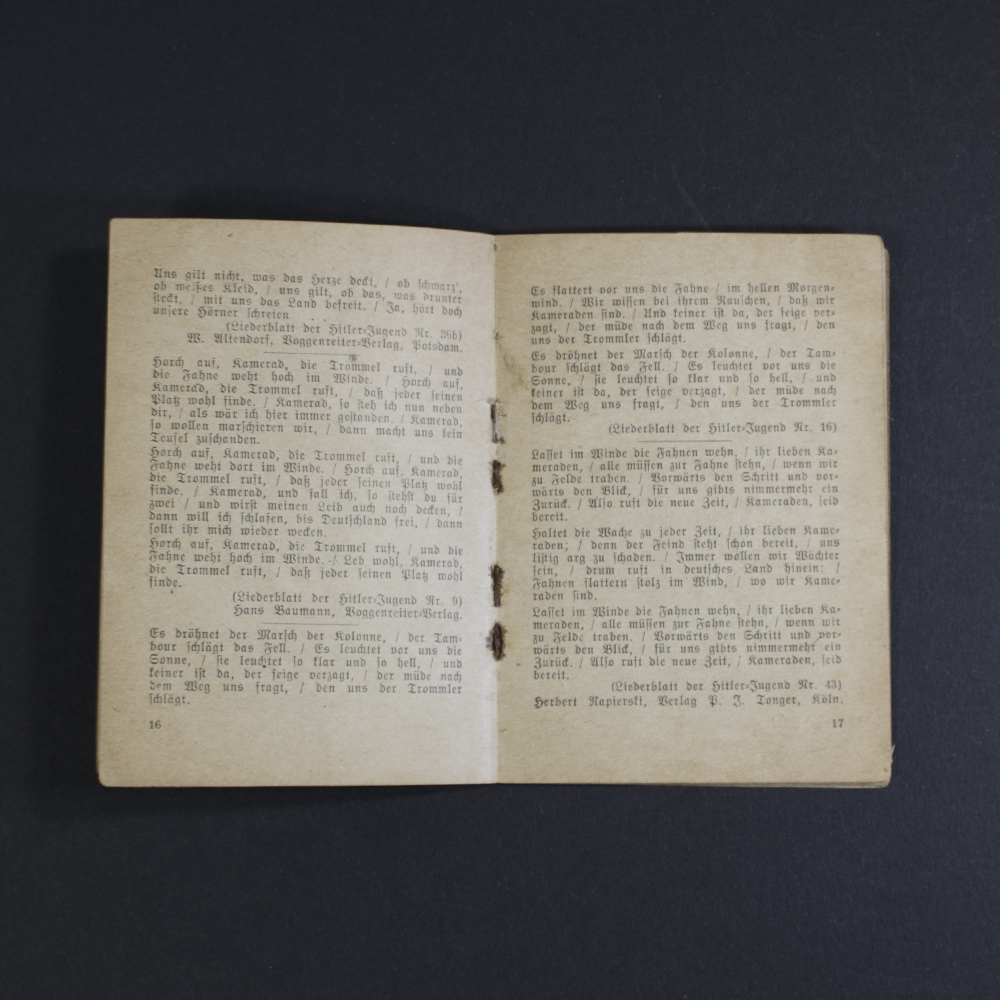 Uns gilt nicht, was das Herze deckt, / ob schwarz',
ob weißes Kleid, / uns gilt, ob das, was drunter
steckt, / mit uns das Land befreit. / Ja, hört doch
unsere Hörner schreien
(Liederblatt der Hitler-Jugend Nr. 36b)
W. Altendorf, Voggenreiter-Verlag, Potsdam.
Horch auf, Kamerad, die Trommel ruft, / und
die Fahne weht hoch im Winde. / Horch auf,
Kamerad, die Trommel ruft, / daß jeder seinen
Platz wohl finde. / Kamerad, so steh ich nun neben
dir, / als wär ich hier immer gestanden. / Kamerad,
so wollen marschieren wir, / dann macht uns kein
Teufel zuschanden.
Horch auf, Kamerad, die Trommel ruft, / und die
Fahne weht dort im Winde. / Horch auf, Kamerad,
die Trommel ruft, / daß jeder seinen Platz wohl
finde. / Kamerad, und fall ich, so stehst du für
zwei / und wirst meinen Leib auch noch decken, /
dann will ich schlafen, bis Deutschland frei, / dann
sollt ihr mich wieder wecken.
Horch auf, Kamerad, die Trommel ruft, / und die
Fahne weht hoch im Winde. / Leb wohl, Kamerad,
die Trommel ruft, / daß jeder seinen Platz wohl
finde.
(Liederblatt der Hitler-Jugend Nr. 9)
Hans Baumann, Voggenreiter-Verlag.
Es dröhnet der Marsch der Kolonne, / der Tam-
bour schlägt das Fell. / Es leuchtet vor uns die
Sonne, / sie leuchtet so klar und so hell, / und
keiner ist da, der feige verzagt, / der müde nach
dem Weg uns fragt, / den uns der Trommler
schlägt.
16
Es flattert vor uns die Fahne / im hellen Morgen-
wind. / Wir wissen bei ihrem Rauschen, / daß wir
Kameraden sind. / Und keiner ist da, der feige ver-
zagt, / der müde nach dem Weg uns fragt, / den
uns der Trommler schlägt.
Es dröhnet der Marsch der Kolonne, / der Tam-
bour schlägt das Fell. / Es leuchtet vor uns die
Sonne, / sie leuchtet so klar und so hell, / und
keiner ist da, der feige verzagt, / der müde nach
dem Weg uns fragt, / den uns der Trommler
schlägt.
(Liederblatt der Hitler-Jugend Nr. 16)
Lasset im Winde die Fahnen wehn, / ihr lieben Ka-
meraden, / alle müssen zur Fahne stehn, / wenn wir
zu Felde traben. / Vorwärts den Schritt und vor-
wärts den Blick, / für uns gibts nimmermehr ein
Zurück. / Also ruft die neue Zeit, / Kameraden, seid
bereit.
Haltet die Wache zu jeder Zeit, / ihr lieben Kame-
raden; / denn der Feind steht schon bereit, / uns
listig arg zu schaden. / Immer wollen wir Wächter
sein, / drum ruft in deutsches Land hinein: /
Fahnen flattern stolz im Wind, / wo wir Kame-
raden sind.
Lasset im Winde die Fahnen wehn, / ihr lieben Ka-
meraden, / alle müssen zur Fahne stehn, / wenn wir
zu Felde traben. / Vorwärts den Schritt und vor-
wärts den Blick, / für uns gibts nimmermehr ein
Zurück. / Also ruft die neue Zeit, / Kameraden, seid
bereit.
(Liederblatt der Hitler-Jugend Nr. 43)
Herbert Napierski, Verlag P. J. Tonger, Köln.
17